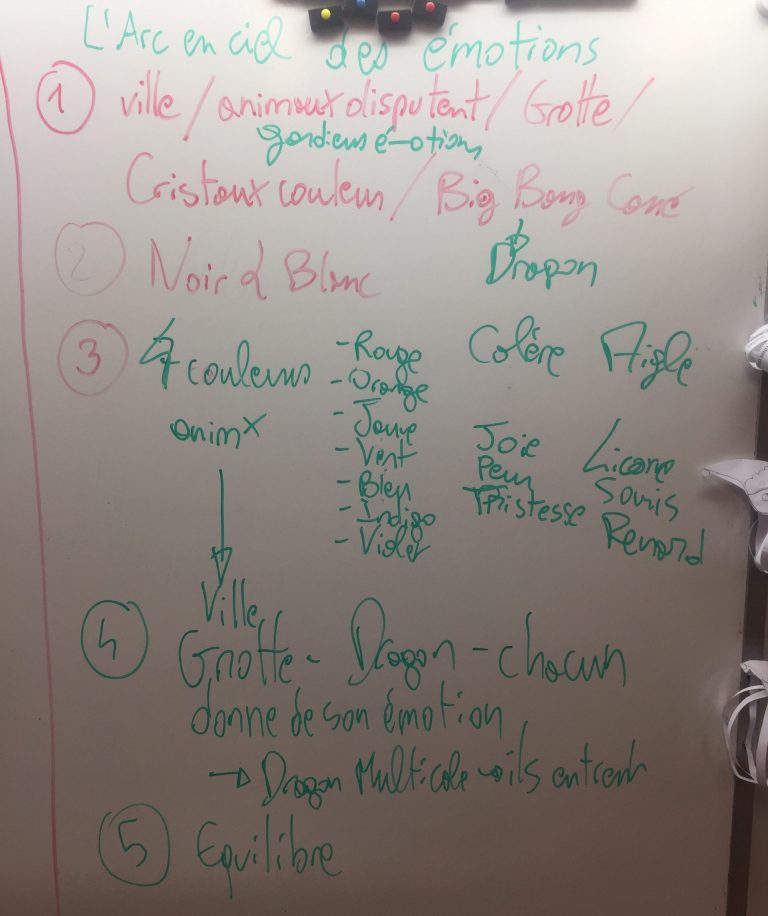 L'Arc en ciel des émotions
① ville / animaux disputent / Grotte /
gardiens émotions
Cristaux couleurs / Big Bang Carré
② Noir & Blanc Dragon
③ 7 couleurs
animx
- Rouge
- Orange
- Jaune
- Vert
- Bleu
- Indigo
- Violet
Colère Aigle
Joie Licorne
Peur Souris
Tristesse Renard
Ville
④ Grotte - Dragon - chacun
donne de son émotion
→ Dragon Multicole → ils entrent
⑤ Equilibre